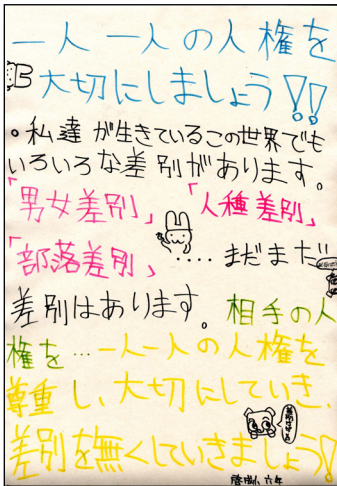 一人一人の人権を
大切にしましょう!!
。私達が生きているこの世界でも
いろいろな差別があります。
「男女差別」 「人種差別」
「部落差別」 ・・・・・ まだまだ
差別はあります。 相手の人
権を…一人一人の人権を
尊重し、大切にしていき、
差別を無くしていきましょう!
六年